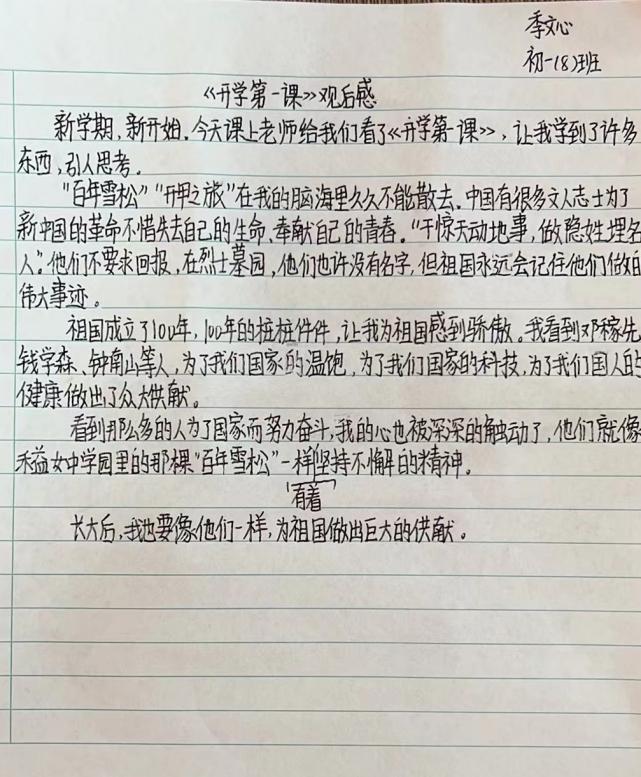 季文心
初一(8)班
《开学第一课》观后感
新学期，新开始。今天课上老师给我们看了《开学第一课》，让我学到了许多
东西，引人思考。
"百年雪松""开甲之旅"在我的脑海里久久不能散去。中国有很多文人志士为了
新中国的革命不惜失去自己的生命、奉献自己的青春。"干惊天动地事，做隐姓埋名
人"。他们不要求回报，在烈士墓园，他们也许没有名字，但祖国永远会记住他们做的
伟大事迹。
祖国成立了100年，100年的桩桩件件，让我为祖国感到骄傲。我看到邓稼先
钱学森、钟南山等人，为了我们国家的温饱，为了我们国家的科技，为了我们国人的
健康做出了众大供献。
看到那么多的人为了国家而努力奋斗，我的心也被深深的触动了，他们就像
禾益女中学园里的那棵"百年雪松"一样坚持不懈的精神。
有着
长大后，我也要像他们一样，为祖国做出巨大的供献。